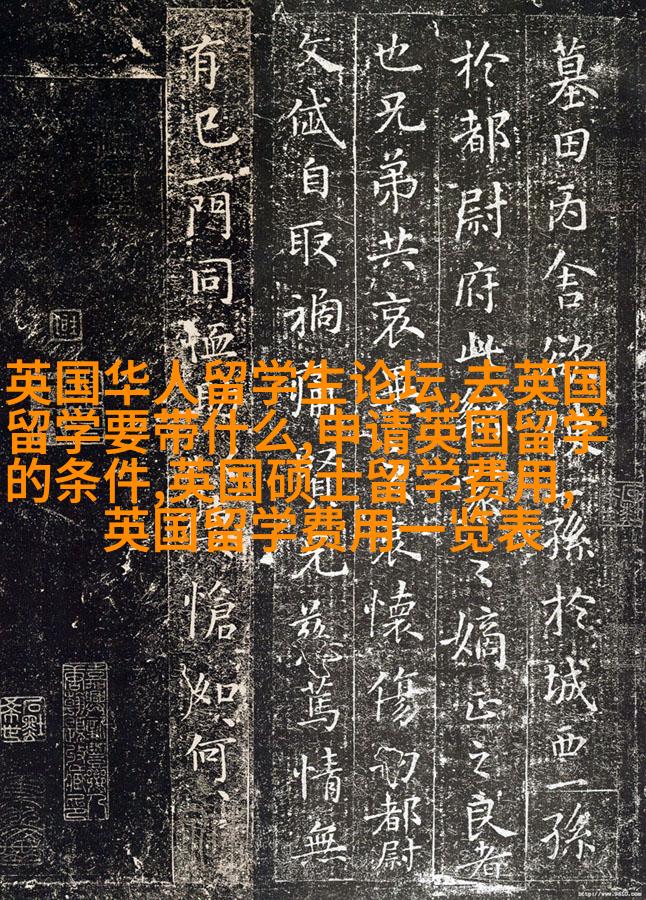 英国华人留学生论坛,去英国
留学要带什么,申请英国留学
的条件,英国硕士留学费用,
英国留学费用一览表
墓田丙舍欲孫於城西一孫
於都尉府此之嫡正之良者
也兄弟共哀哀懷傷切都尉
文岱自取禍痛賢兄慈篤情無
有已一門同恤愴如何